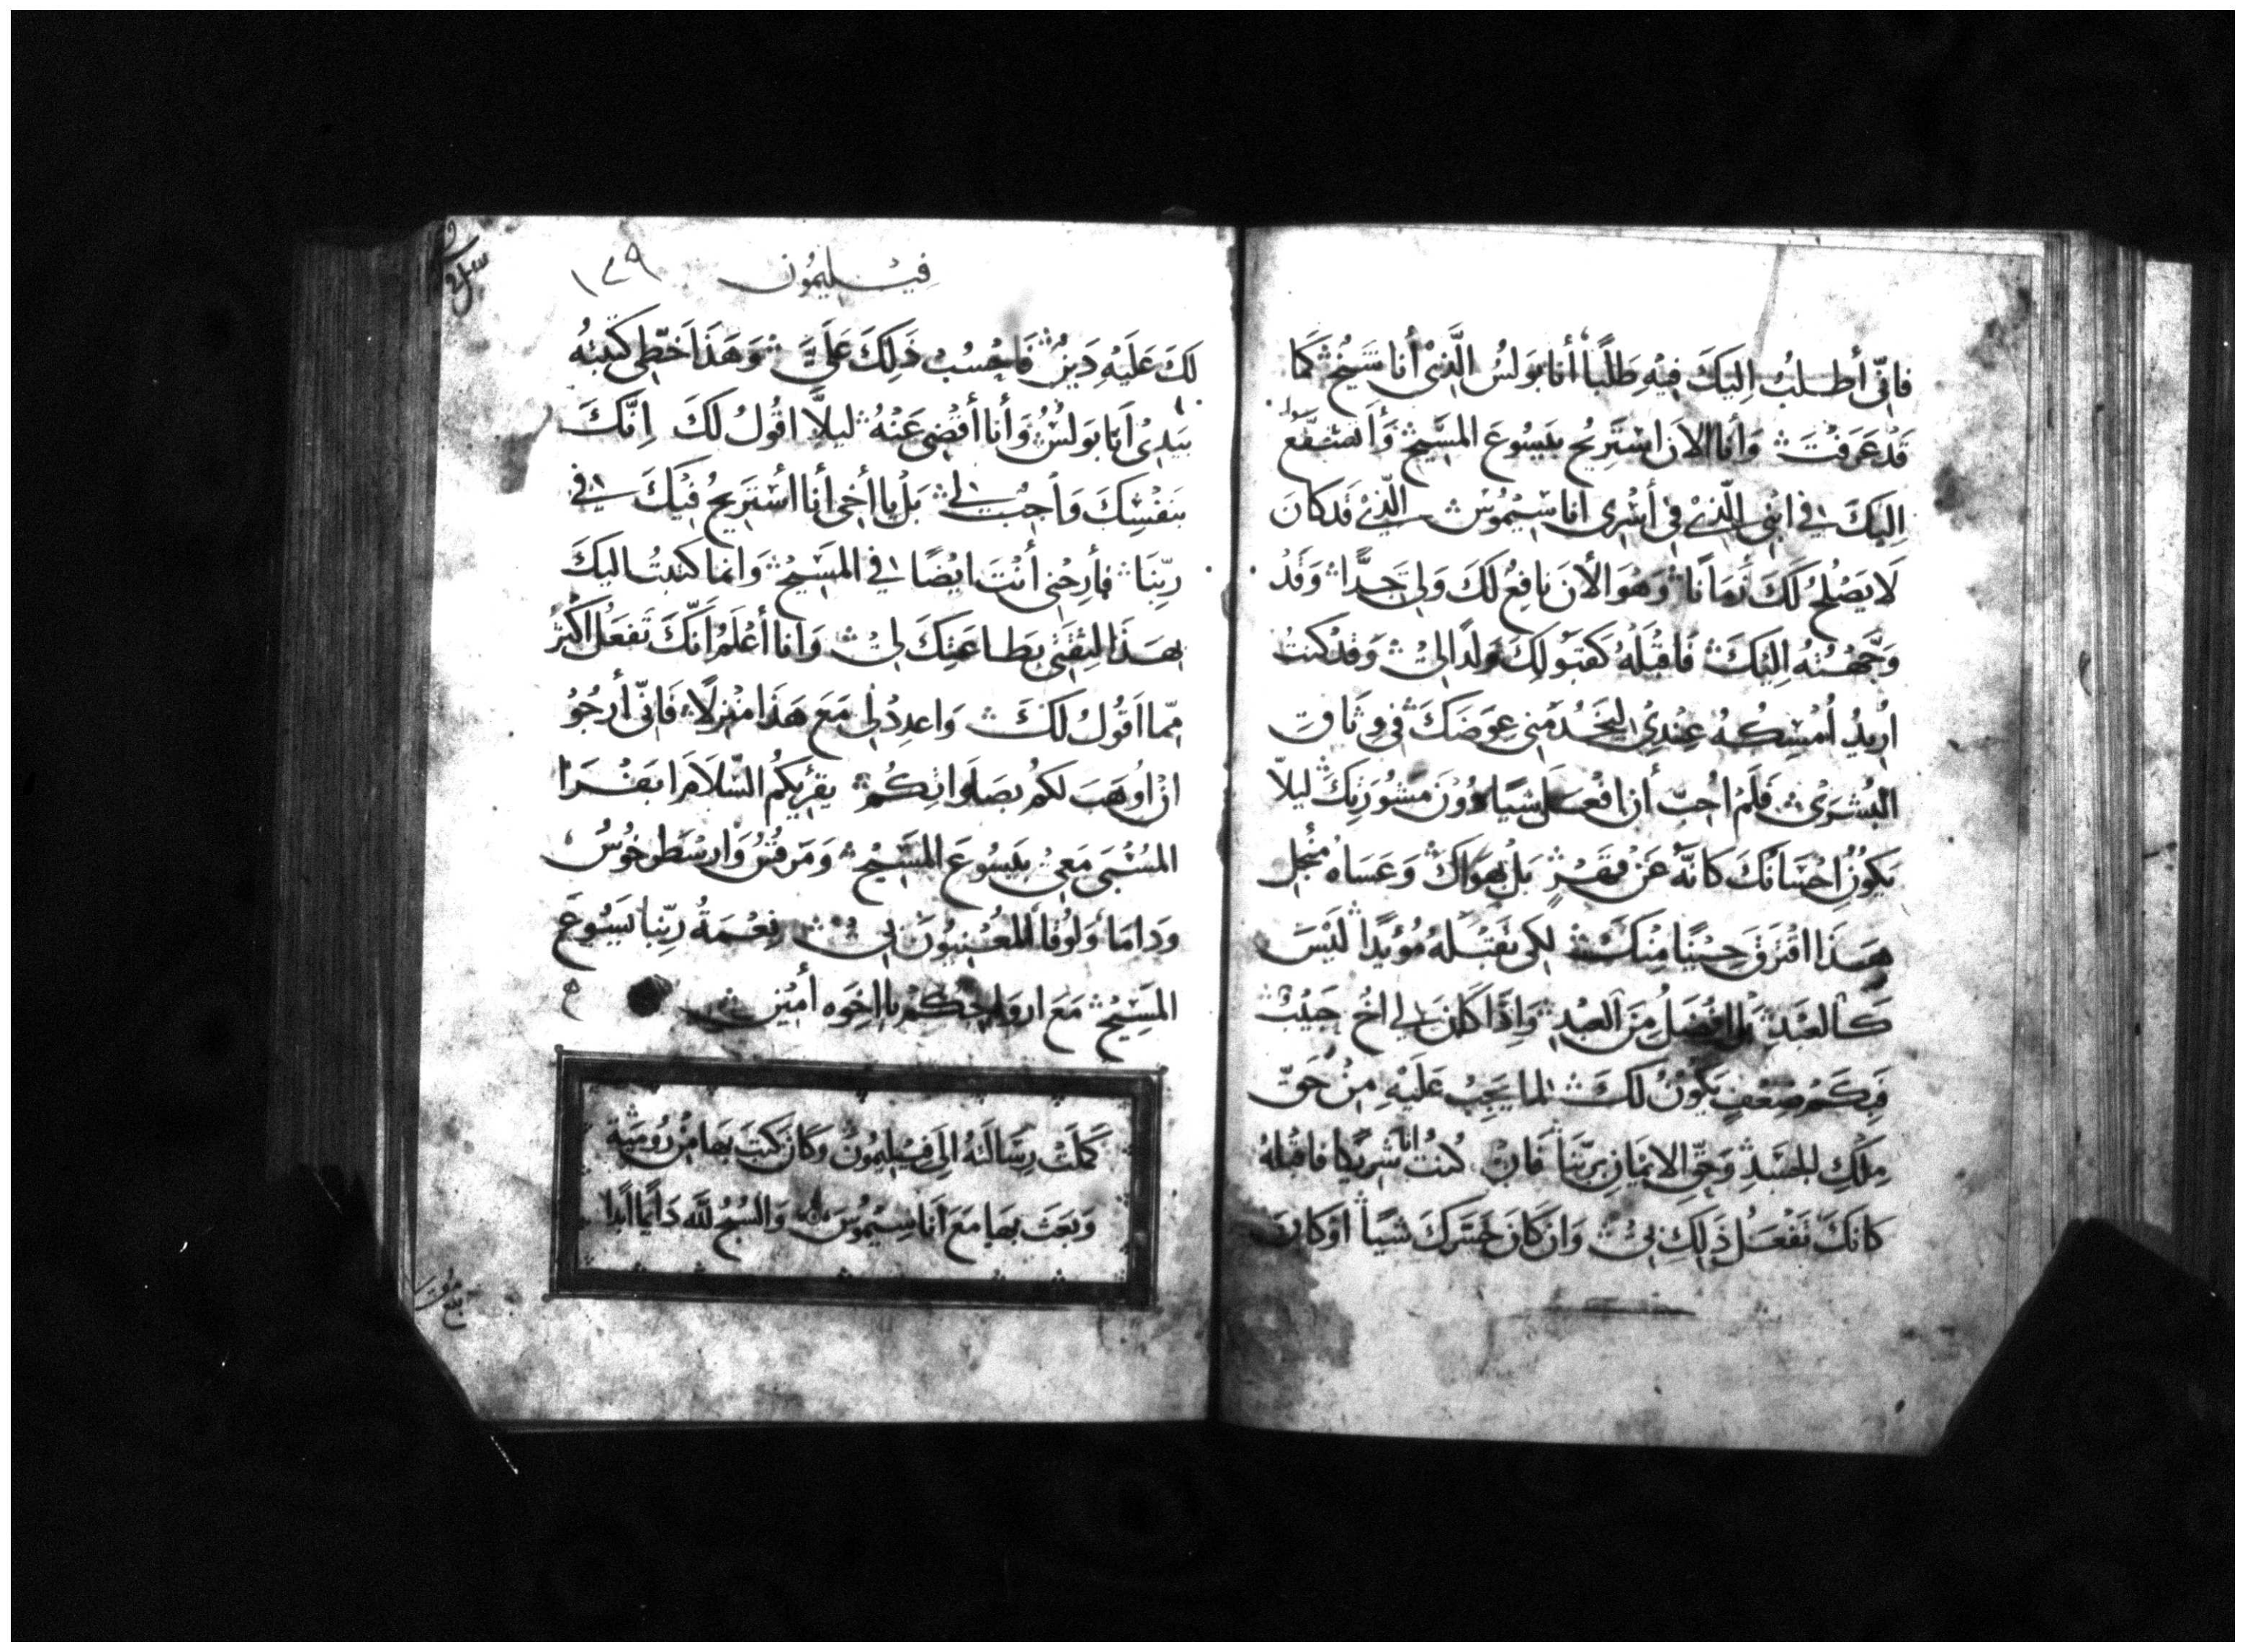 فانّى أطلبُ اليكَ فيْهِ طَلَبًا أنا بَولسُ الَّذيْ أنا شَيخ كَما
قَدْ عَرَفْتَ وَأنا الان استَرِيح بيَسُوعَ المسَيح وَأتشفّعُ
اليكَ في ابْني الّذيْ في أسْرى اناسْيمُوسْ الّذيْ قد كان
لا يَصْلحُ لكَ زَمَانًا وَهُوَ الأن نافِعٌ لكَ وَلى جدًّا وَقدْ
وَجَّهْتهُ اليْكَ فَاقْبَلْهُ كقبَولِكَ وَلدًا لىْ وَقدْ كنتُ
اريْدُ أمْسِكهُ عِندِيْ ليَخدُمنى عِوَضَكَ في وثاق
البُشرَىْ فَلَمْ احُبّ أن افعَل شيًا دوْنَ مَشوُرتِكَ ليلّا
يَكوُن احْسَانَكَ كانَّهُ عَنْ فقْرٍ بَلْ بهَوَاكَ وَعَسَاهُ منْ اجل
هَذا افترَقَ حِيْنًا مِنكَ لِكى تقبَلهُ مُؤيدًا لَيْسَ
كالعَبْدِ بل افضَلُ مِنَ العبدِ وَاذَا كان لي اخٌ حَبيْبٌ
فَبِكَم ضِعْفٍ يَكوْنُ لكَ لما يَجِبُ عَليْهِ مِنْ حَقّ
مِلكِ الجسَدِ وَحَقّ الايمَانِ برّبنا فان كُنتُ أنا شريكًا فاقبلهُ
كانكَ تفعَلُ ذَلِكَ بيْ وَان كانَ خَسَّركَ شيًا أوْ كان
فيْليمُون ١٣٩
لكَ عَليْهِ دَينٌ فَاحْسُبْ ذَلِكَ عَليَّ وَهَذا خَطّى كتبتهُ
بيَديْ أنا بَولسْ وَأنا أقضى عَنْهُ ليلّا اقُولُ لكَ اِنّكَ
بنَفْسِكَ وَاجبٌ لي بَلْ يا أخى أنا أسْتريحُ فيْكَ في
ربّنا فأرِحْنى أنتَ ايْضًا في المسَيْح وَانما كتبتُ اليكَ
بهَذا لثِقَتى بطاعَتِكَ لىْ وَانا أعْلَمُ انّكَ تَفعَلُ اكْثر
مِمّا اقوُلُ لكَ وَاعدِدْ لى مَعَ هَذا مَنْزلًا فَانّى أرجُوْ
ان اوهَبَ لكم بصَلوَاتِكُم يقرئكم السّلام ابَفْرَا
المسْبَى مَعىْ بيَسُوعَ المسَيْح وَمَرقسْ وَارسْطرخُوسُ
وَدامَا وَلوُقا المعْينوُنَ لىْ نِعْمَةُ ربّنا يَسوُعَ
المسَيْح مَعَ ارواحِكمْ يا اخوَه أميْن
كمَلتْ رسَالتهُ الى فيْليمُونْ وَكانَ كتبَ بهَا مِنْ رُومِيَة
وَبَعَثَ بهَا مَعَ أناسيْمُوسَ وَالسّبْحُ للّه دَايمًا ابدًا